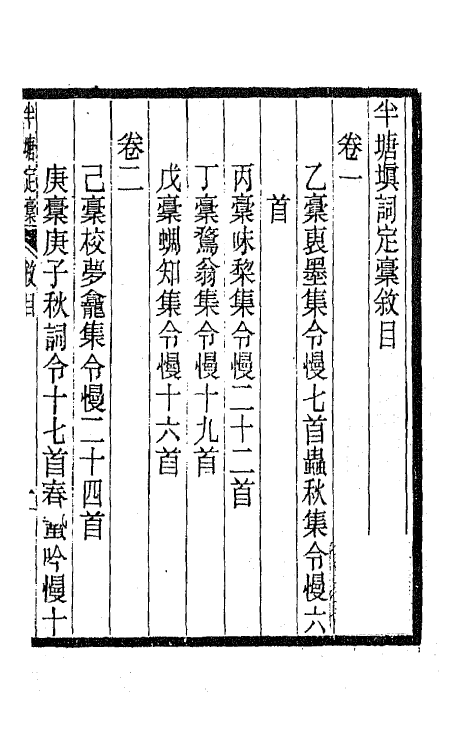 半塘塡詞定稾敘目
卷一
乙稾袌墨集令慢七首蟲秋集令慢六
首
丙稾味棃集令慢二十二首
丁稾鶩翁集令慢十九首
戊稾蜩知集令慢十六首
卷二
己稾校夢龕集令慢二十四首
庚稾庚子秋詞令十七首春蟄吟慢十
半塘定稾 敘目 一